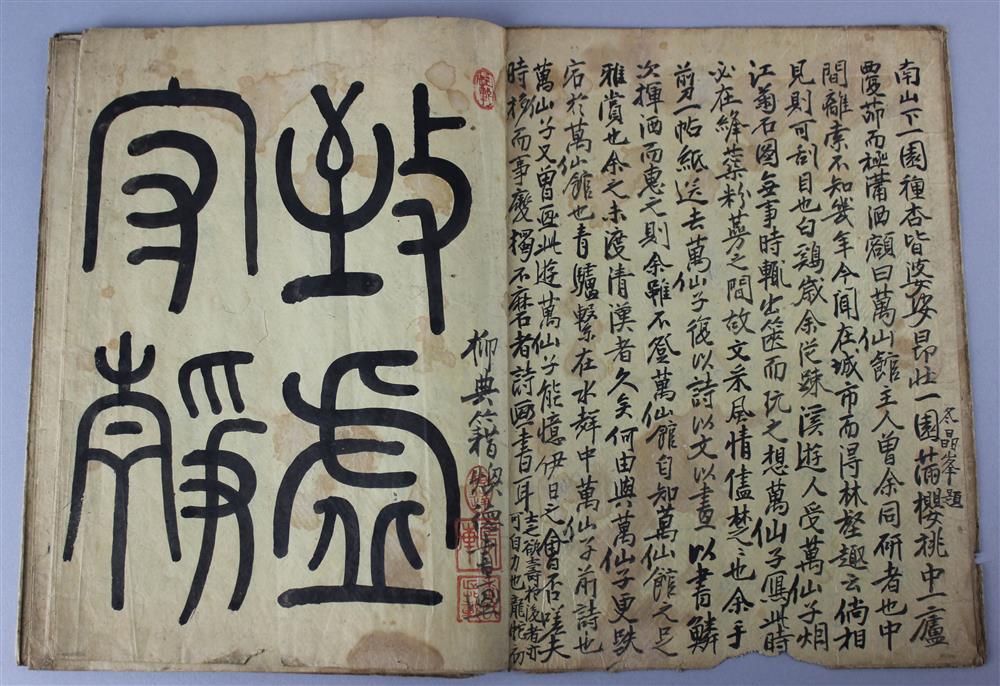 南山下一園種杏皆婆娑昂壯一園滿櫻桃中一廬
覆茆而極蕭洒額曰萬仙館主人曾余同研者也中
間離索不知幾年今聞在城市而得林壑趣云倘相
見則可刮目也白鷄歲余從疎溪遊人受萬仙子烟
江菊石圖每事時輒出篋而玩之想萬仙子寫此時
必在絳葉粉萼之間故文采風情儘楚〻也余手
剪一帖紙送去萬仙子復以詩以文以畫以書鱗
次揮洒而惠之則余雖不登萬仙館自知萬仙館之足
雅賞也余之未渡清漢者久矣何由與萬仙子更跌
宕於萬仙館也青驢繫在水中萬仙子前詩也
萬仙子又曾画此遊萬仙子能憶伊日之會否嗟夫
時移而事變獨不磨者詩画書耳
士之欲壽於後者亦
何自力也
冬晶峯題
柳典籍煥德
致虛
守靜